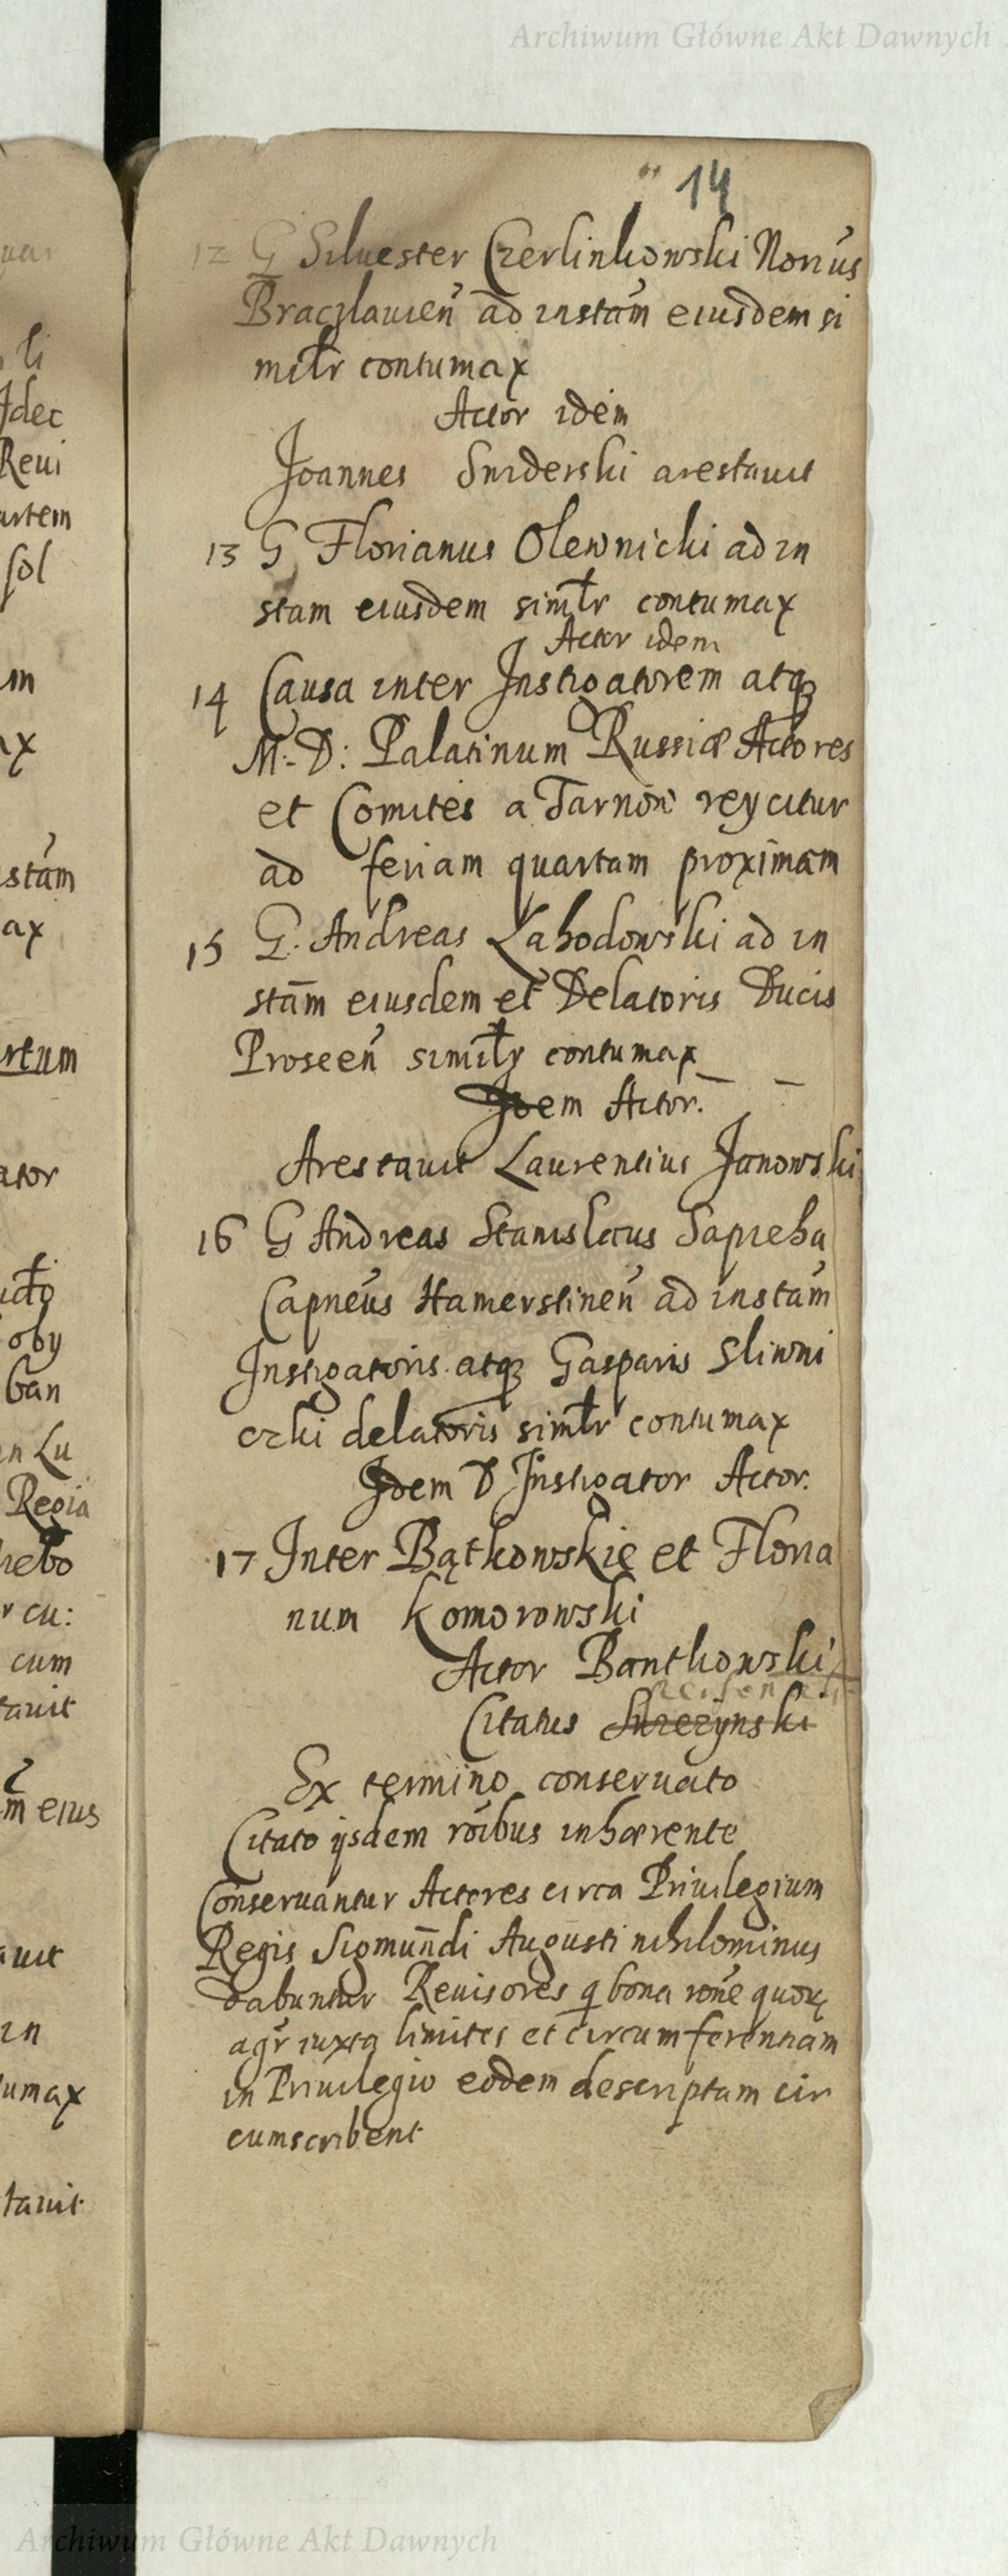 Archiwum Główne Akt Dawnych
14
12 G Siluester Czerlinkowski Norius
Braczlauień ad instam eiusdem si
milr contumax
Actor idem
Joannes Suiderski arestauit
13 G Florianus Olewnicki ad in
stam eiusdem similr contumax
Actor idem
14 Causa inter Instigatorem atq
M. D: Palatinum Russiæ Actores
et Comites a Tarnōn reycitur
ad feriam quartam proximam
15 G. Andreas Lahodowski ad in
stam eiusdem et Delatoris Ducis
Proseeń similr contumax
Idem Actor.
Arestauit Laurentius Janowski
16 G Andreas Stanislaus Sapieha
Capneus Hamerstineń ad instam
Instigatoris atq Gasparis Sliwni
czki delatoris similr contumax
Idem D Instigator Actor.
17 Inter Bątkowskie et Floria
num Komorowski
Actor Bantkowski
Citatus
Ex termino conseruato
Citato ijsdem roibus inhærente
Conseruantur Actores circa Priuilegium
Regis Sigmundi Augusti nihilominus
dabuntur Reuisores q bona rone quor
agr iuxta limites et circumferentiam
in Priuilegio eodem descriptam cir
cumscribent
li
Idec
Reui
artem
sol
ax
stam
ax
rtum
ator
oby
ban
n Lu
Regia
hebo
r cu:
cum
tauit
m eius
auit
in
umax
tauit
Archiwum Główne Akt Dawnych